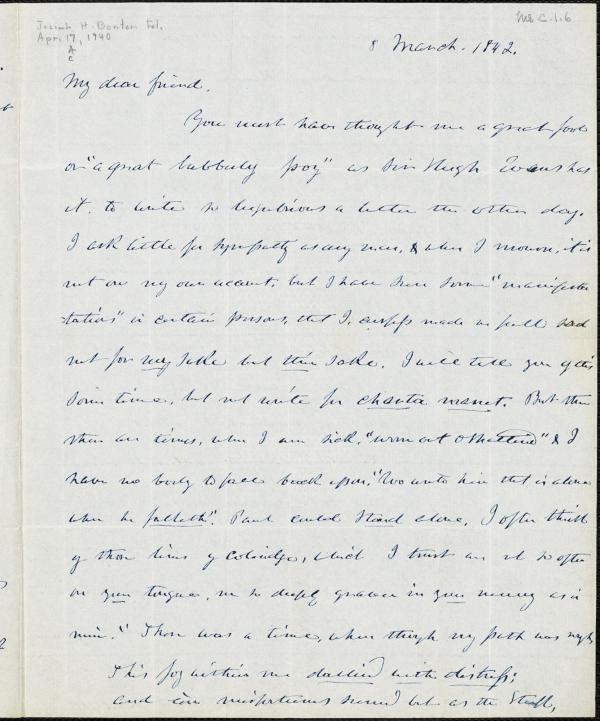 Josiah H. Benton Fd.
Apr. 17, 1940
A
C
Ms. C. 1.6
8 March. 1842.
My dear friend.
You must have thought me a great fool
or "a great lubberly poy" as Sir Hugh Evans has
it. to write so lugubrious a letter the other day.
I ask little for sympathy as any man, & when I mourn, it is
not on my own account. but I have seen some "manifes
-tations" in certain persons, that I confess made me feel sad
not for my sake but their sake. I will tell you of this
some time, but not write for charta manet. But then
there are times, when I am sick, "worn out & " & I
have no body to fall back upon. "Wo unto him that is alone
when he falleth". Paul could stand alone. I often think
of those lines of Coleridge, which I trust are not so often
on your tongue, nor so deeply graven in your memory as in
mine. "There was a time, when though my path was rough
This joy within me dallied with distress;
and even misfortunes seemed but as the stuff,